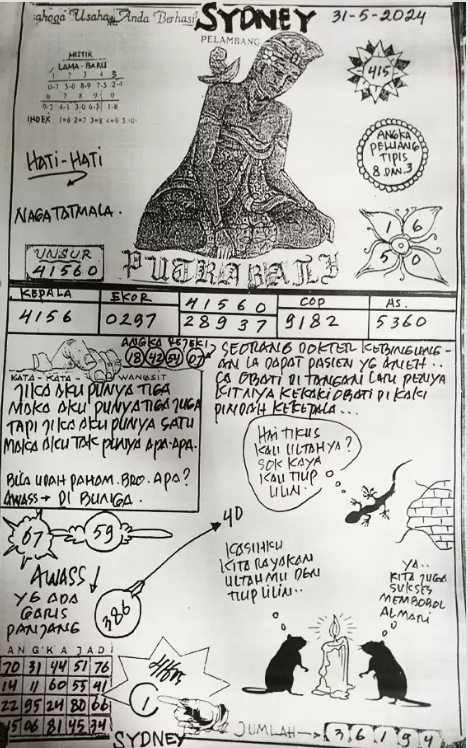 Usaha Anda Berhasi
SYDNEY
31-5-2024
PELAMBANG
MISTIK
LAMA - BARU
1 2 3 4 5
0-7 3-6 8-9 7-3 2-4
6 7 8 9 0
9-2 4-1 3-0 6-5 1-8
INDEX 1=6 2=7 3=8 4=9 5=0
HATI-HATI
NAGATATMALA.
415
ANGKA
PELUANG
TIPIS
8 DAN 3
1 6
5 0
UNSUR
41560
PUTRABALI
KEPALA
4156
EKOR
0297
41560
28937
COP
9182
AS.
5360
ANGKA REJEKI
18 42 54 07
KATA - KATA - WANGSIT
JIKA AKU PUNYA TIGA
MAKA AKU PUNYA TIGA JUGA
TAPI JIKA AKU PUNYA SATU
MAKA AKU TAK PUNYA APA-APA.
BILA UDAH PAHAM. BRO. APA?
AWASS → DI BUNGA.
SEORANG DOKTER KEBINGUNG-
AN IA DAPAT PASIEN YG ANEH..
DI OBATI DI TANGAN
KEKAKI OBATI DI KAKI
PINDAH KEKEPALA...
HAI TIKUS
KAU ULTAHYA?
SOK KAYA
KAU TIUP
LILIN.
67
59
4D
386
AWASS
YG ADA
GARIS
PANJANG
KASIHKU
KITA RAYAKAN
ULTAHMU DGN
TIUP LILIN..
YA..
KITA JUGA
SUKSES
MEMBOBOL
ALMARI
ANGKA JADI
70 31 44 51 76
14 11 60 55 41
22 95 24 80 66
15 06 81 45 34
1
SYDNEY
JUMLAH → 36194